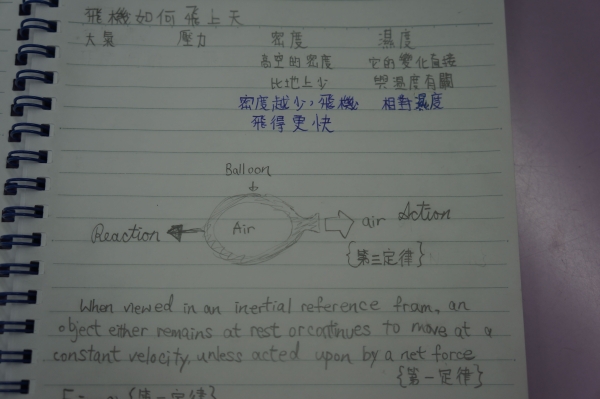 飛機如何飛上天
大氣 壓力 密度 濕度
高空的密度 它的變化直接
比地上少 與溫度有關
密度越少，飛機 相對濕度
飛得更快
Balloon
Reaction Air air Action
{第三定律}
When viewed in an inertial reference fram, an
object either remains at rest or catinues to move at a
constant velocity, unless acted upon by a net force
{第一定律}